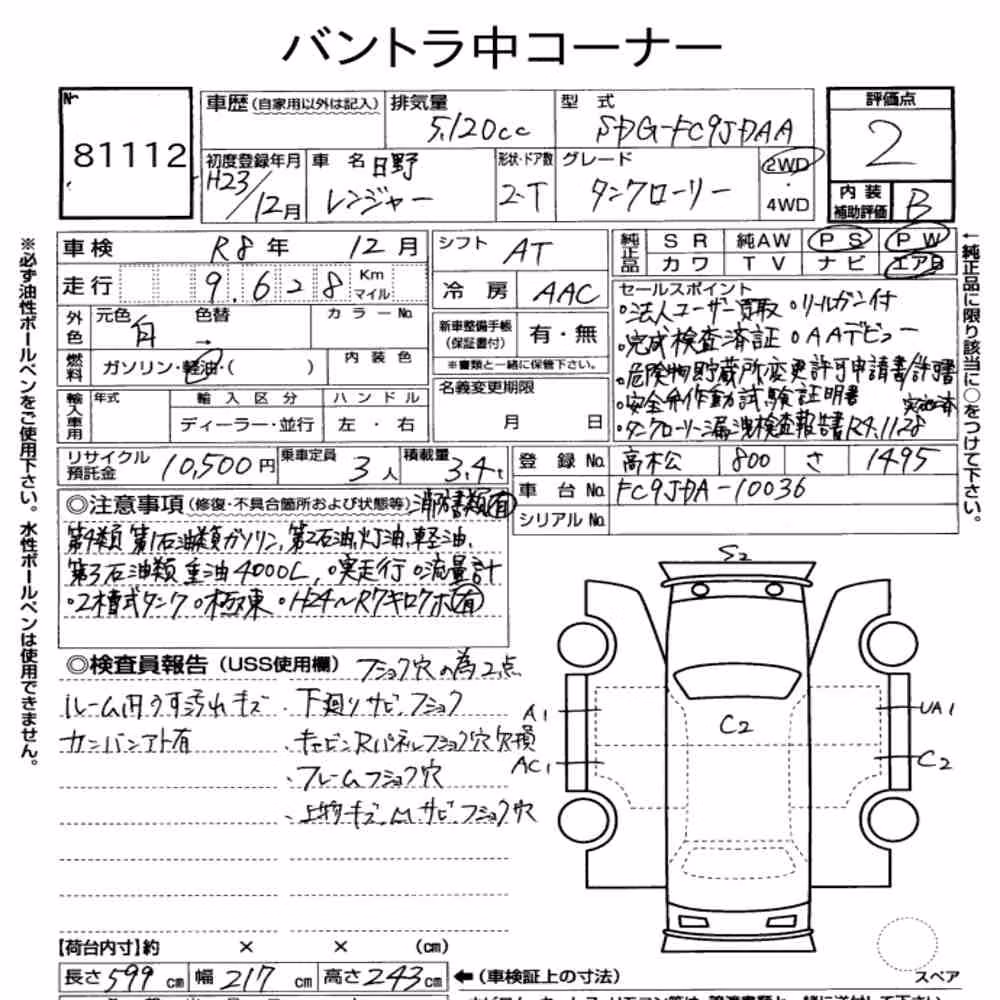 バントラ中コーナー
№ 81112
車歴(自家用以外は記入) 排気量 5,120cc 型式 SDG-FC9JDAA
評価点 2
初度登録年月 H23/12月 車名 日野 レンジャー 形状・ドア数 2-T グレード タンクローリー 2WD・4WD
内装補助評価 B
車検 R8年 12月
シフト AT
純正品 SR 純AW PS PW
カワ TV ナビ エアB
走行 9.628 Km マイル
冷房 AAC
セールスポイント
外色 元色 白 色替 → カラーNo.
新車整備手帳(保証書付) 有・無
※書類と一緒に保管下さい。
。法人ユーザー買取 。リールガン付
。完成検査済証 。AAデビュー
。危険物貯蔵所変更許可申請書/許可書
。安全弁作動試験証明書
。タンクローリー漏洩検査報告書R4.11.28 実施済
燃料 ガソリン・軽油・( ) 内装色
名義変更期限 月 日
輸入車用 年式 輸入区分 ハンドル
ディーラー・並行 左・右
リサイクル預託金 10,500円 乗車定員 3人 積載量 3.4t
登録No. 高松公 800 さ 1495
車台No. FC9JDA-10036
シリアルNo.
◎注意事項(修復・不具合箇所および状態等) 消防書類(有)
第4類 第1石油類ガソリン,第2石油,灯油,軽油,
第3石油類 重油4000L, 。実走行 。流量計
。2槽式タンク 。極東 。H24~R7キロクボ(有)
◎検査員報告(USS使用欄) フショク穴の為2点
ルーム内うす汚れキズ
カンバンアト有
・下廻りサビ,フショク
・キャビンRパネルフショク穴欠損
・フレームフショク穴
・上物キズ,凹,サビ,フショク穴
S2
A1
AC1
C2
UA1
C2
スペア
【荷台内寸】約 × × (cm)
長さ599cm 幅217cm 高さ243cm
←(車検証上の寸法)
※必ず油性ボールペンをご使用下さい。水性ボールペンは使用できません。
←純正品に限り該当に○をつけて下さい。